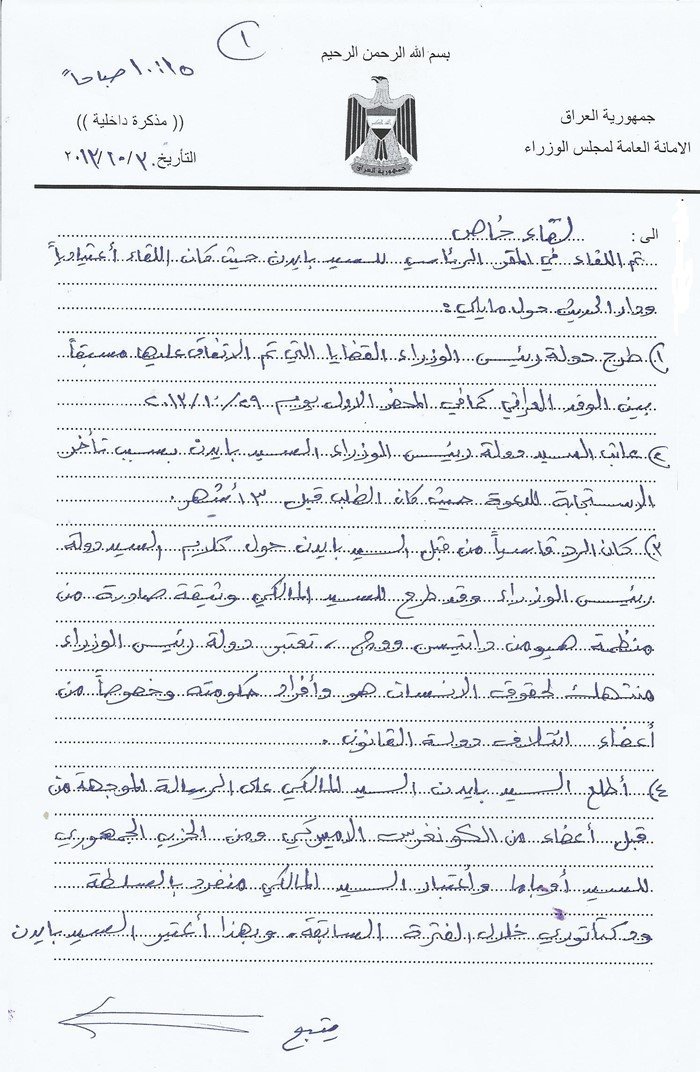 ١
بسم الله الرحمن الرحيم
١٠:١٥ صباحاً
جمهورية العراق
(( مذكرة داخلية ))
الامانة العامة لمجلس الوزراء
التأريخ: ٢٠١٣/١٠/٣٠
جمهورية العراق
الى : لقاء خاص
تم اللقاء في المقر الرئاسي للسيد بايدن حيث كان اللقاء أعتيادياً
ودار الحديث حول مايلي :
١) طرح دولة رئيس الوزراء القضايا التي تم الاتفاق عليها مسبقاً
بين الوفد العراقي كمافي المحضر الاول يوم ٢٠١٣/١٠/٢٩
٢) عاتب السيد دولة رئيس الوزراء السيد بايدن بسبب تأخر
الاستجابة للدعوة حيث كان الطلب قبل ٣ أشهر .
٣) كان الرد قاسياً من قبل السيد بايدن حول كلام السيد دولة
رئيس الوزراء وقد طرح للسيد المالكي وثيقة صادرة من
منظمة هيومن رايتس ووج ، تعتبر دولة رئيس الوزراء
منتهك لحقوق الانسان هو وأفراد حكومته وخصوصاً من
أعضاء ائتلاف دولة القانون .
٤) أطلع السيد بايدن السيد المالكي على الرسالة الموجهة من
قبل أعضاء من الكونغرس الاميركي ومن الحزب الجمهوري
للسيد أوباما وأعتبار السيد المالكي منفرد بالسلطة
ودكتاتوري خلال الفترة السابقة. وبهذا أعتبر السيد بايدن
يتبع